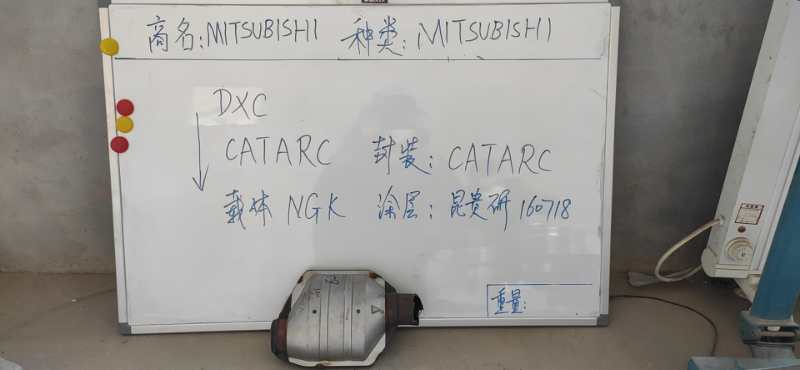 商名:MITSUBISHI 种类:MITSUBISHI
DXC
CATARC 封装:CATARC
载体 NGK 涂层:昆贵研 160718
重量: